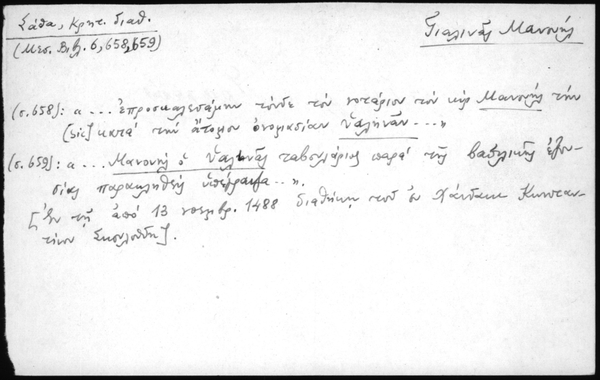 Σάθα, Κρητ. διαθ.
(Μεσ. Βιβλ. 6, 658, 659)
Γιαλινᾶς Μανουήλ
(σ. 658): « ... ἐπροσκαλεσάμην τόνδε τὸν νοτάριον τὸν κὺρ Μανουὴλ τὴν
[sic] κατὰ τὴν ἄτολμον ὀνομασίαν Υαληνᾶν ... »
(σ. 659): « ... Μανουὴλ ὁ Υαλινᾶς ταβουλάριος παρὰ τῆς βασιλικῆς ἐξου-
σίας παρακληθεὶς ὑπέγραψα .. ».
[Ἐν τῇ ἀπὸ 13 νοεμβρ. 1488 διαθήκῃ τοῦ ἐν Χάνδακι Κωνσταν-
τίνου]